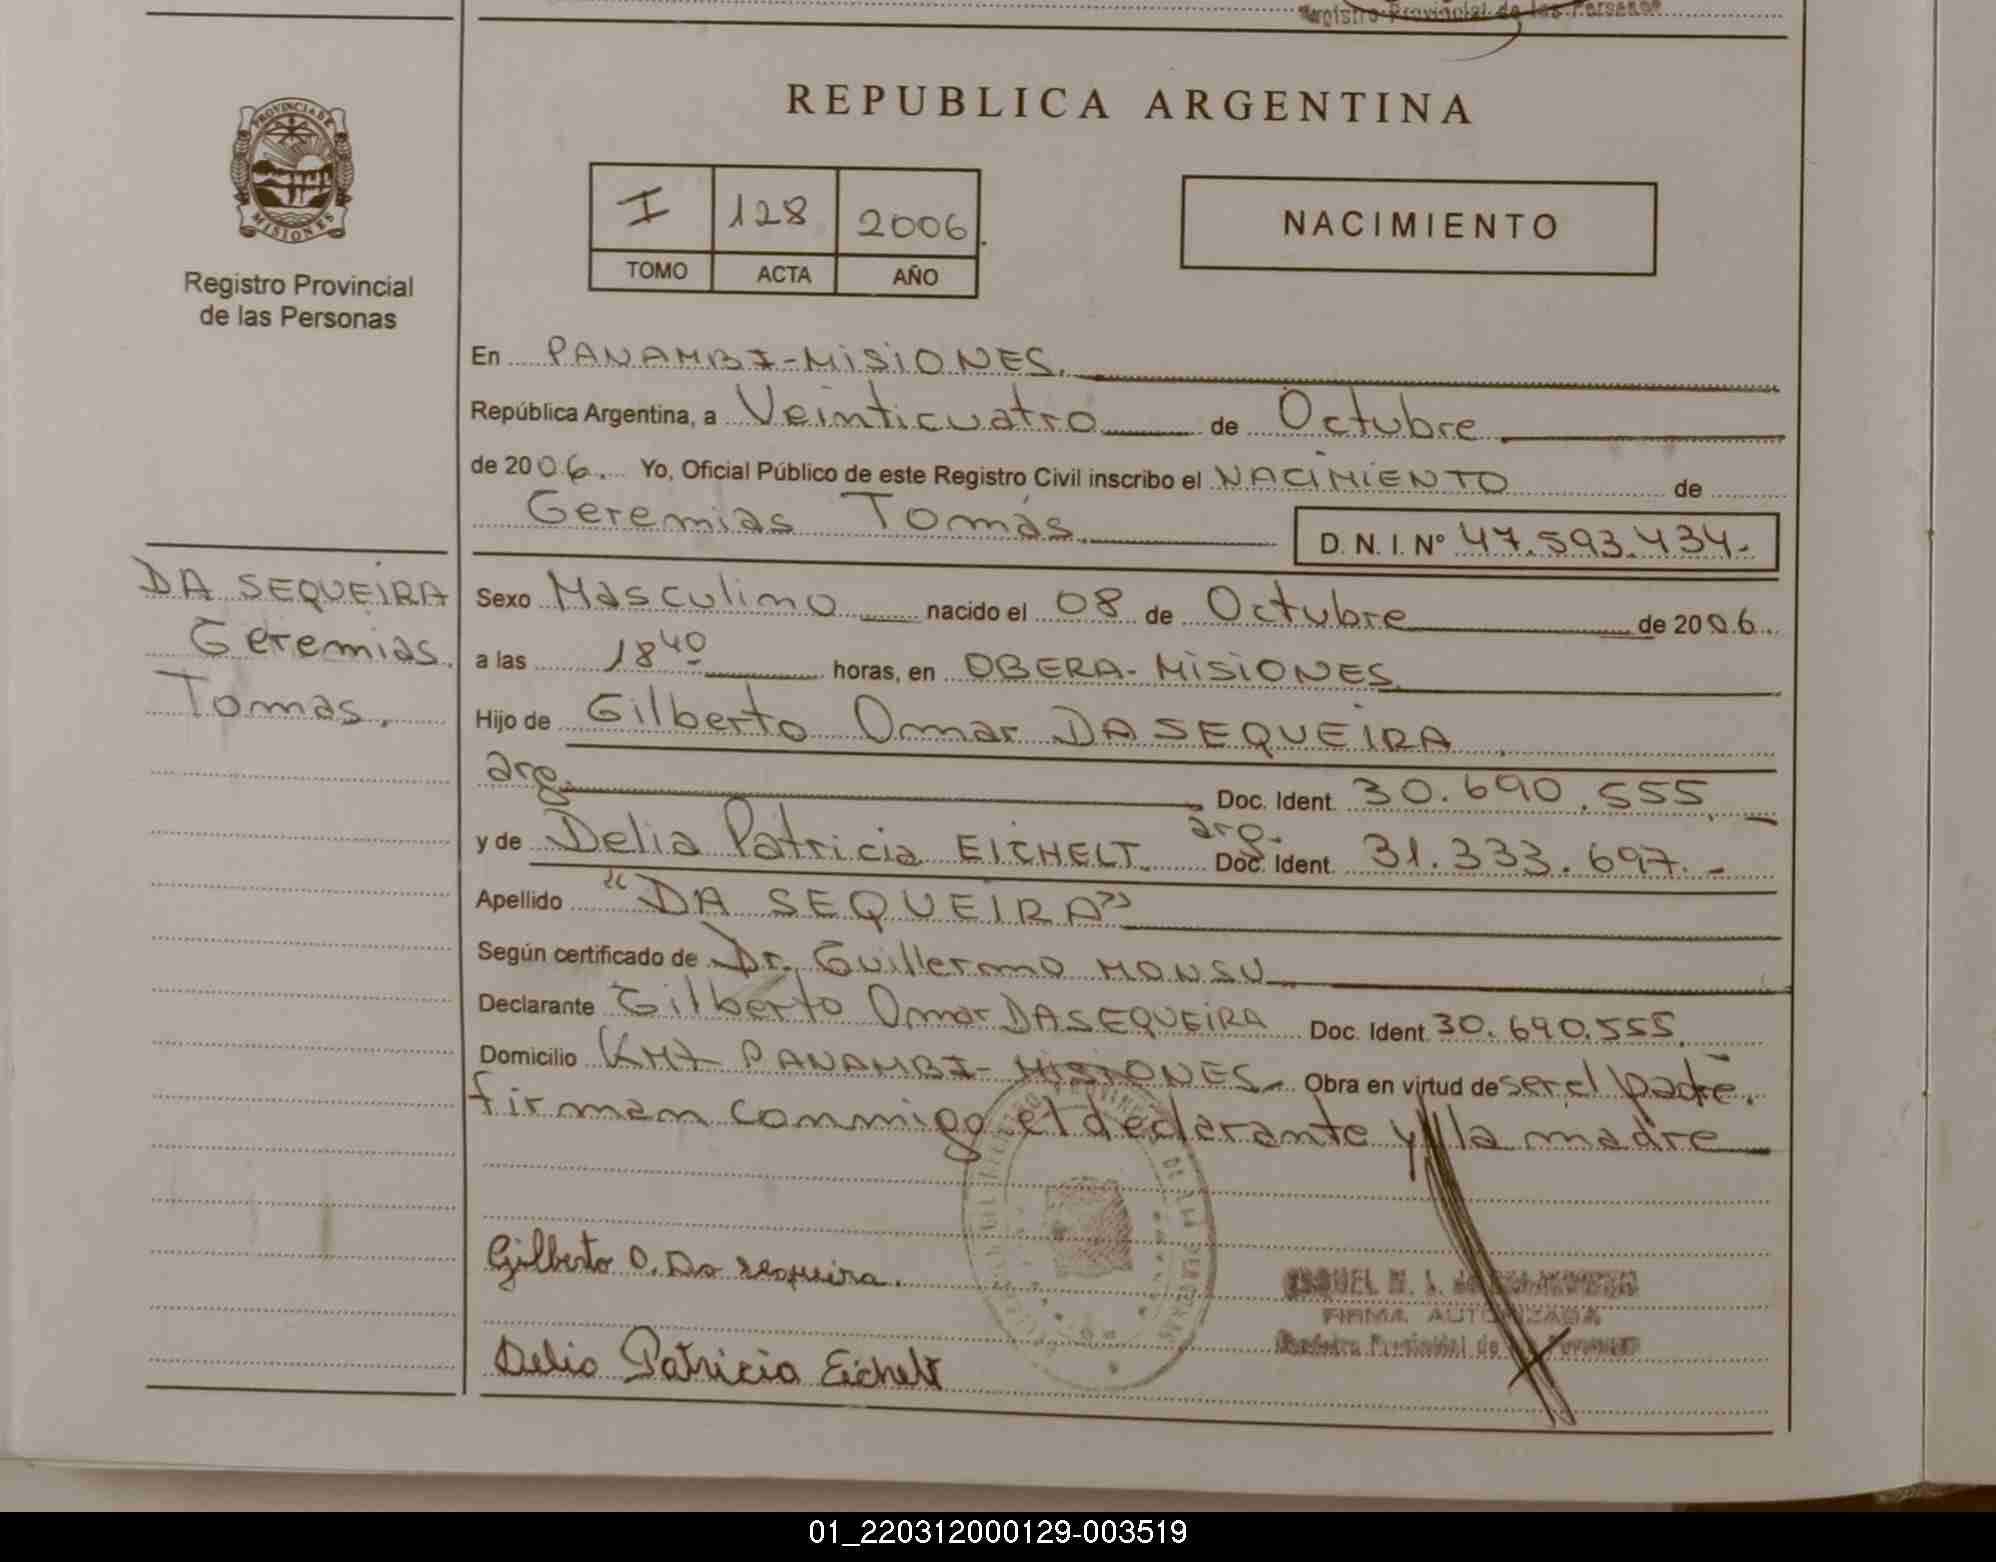 Registro Provincial de las Personas
REPUBLICA ARGENTINA
PROVINCIA DE
MISIONES
Registro Provincial
de las Personas
I 128 2006
TOMO ACTA AÑO
NACIMIENTO
En PANAMBI-MISIONES.
República Argentina, a Veinticuatro de Octubre
de 2006. Yo, Oficial Público de este Registro Civil inscribo el NACIMIENTO de
Geremias Tomás.
D. N. I. Nº 47.593.434.-
DA SEQUEIRA
Geremias
Tomas.
Sexo Masculino nacido el 08 de Octubre de 2006.
a las 18 40 horas, en OBERA-MISIONES.
Hijo de Gilberto Omar DA SEQUEIRA
arg. Doc. Ident. 30.690.555.-
y de Delia Patricia EICHELT arg. Doc. Ident. 31.333.697.-
Apellido “DA SEQUEIRA”
Según certificado de Dr. Guillermo MONSU
Declarante Gilberto Omar DA SEQUEIRA Doc. Ident. 30.690.555.-
Domicilio PANAMBI-MISIONES.- Obra en virtud de ser el padre.
firman conmigo el declarante y la madre
Gilberto O. Da sequeira.
FIRMA AUTORIZADA
Registro Provincial de las Personas
Delia Patricia Eichelt
01_220312000129-003519